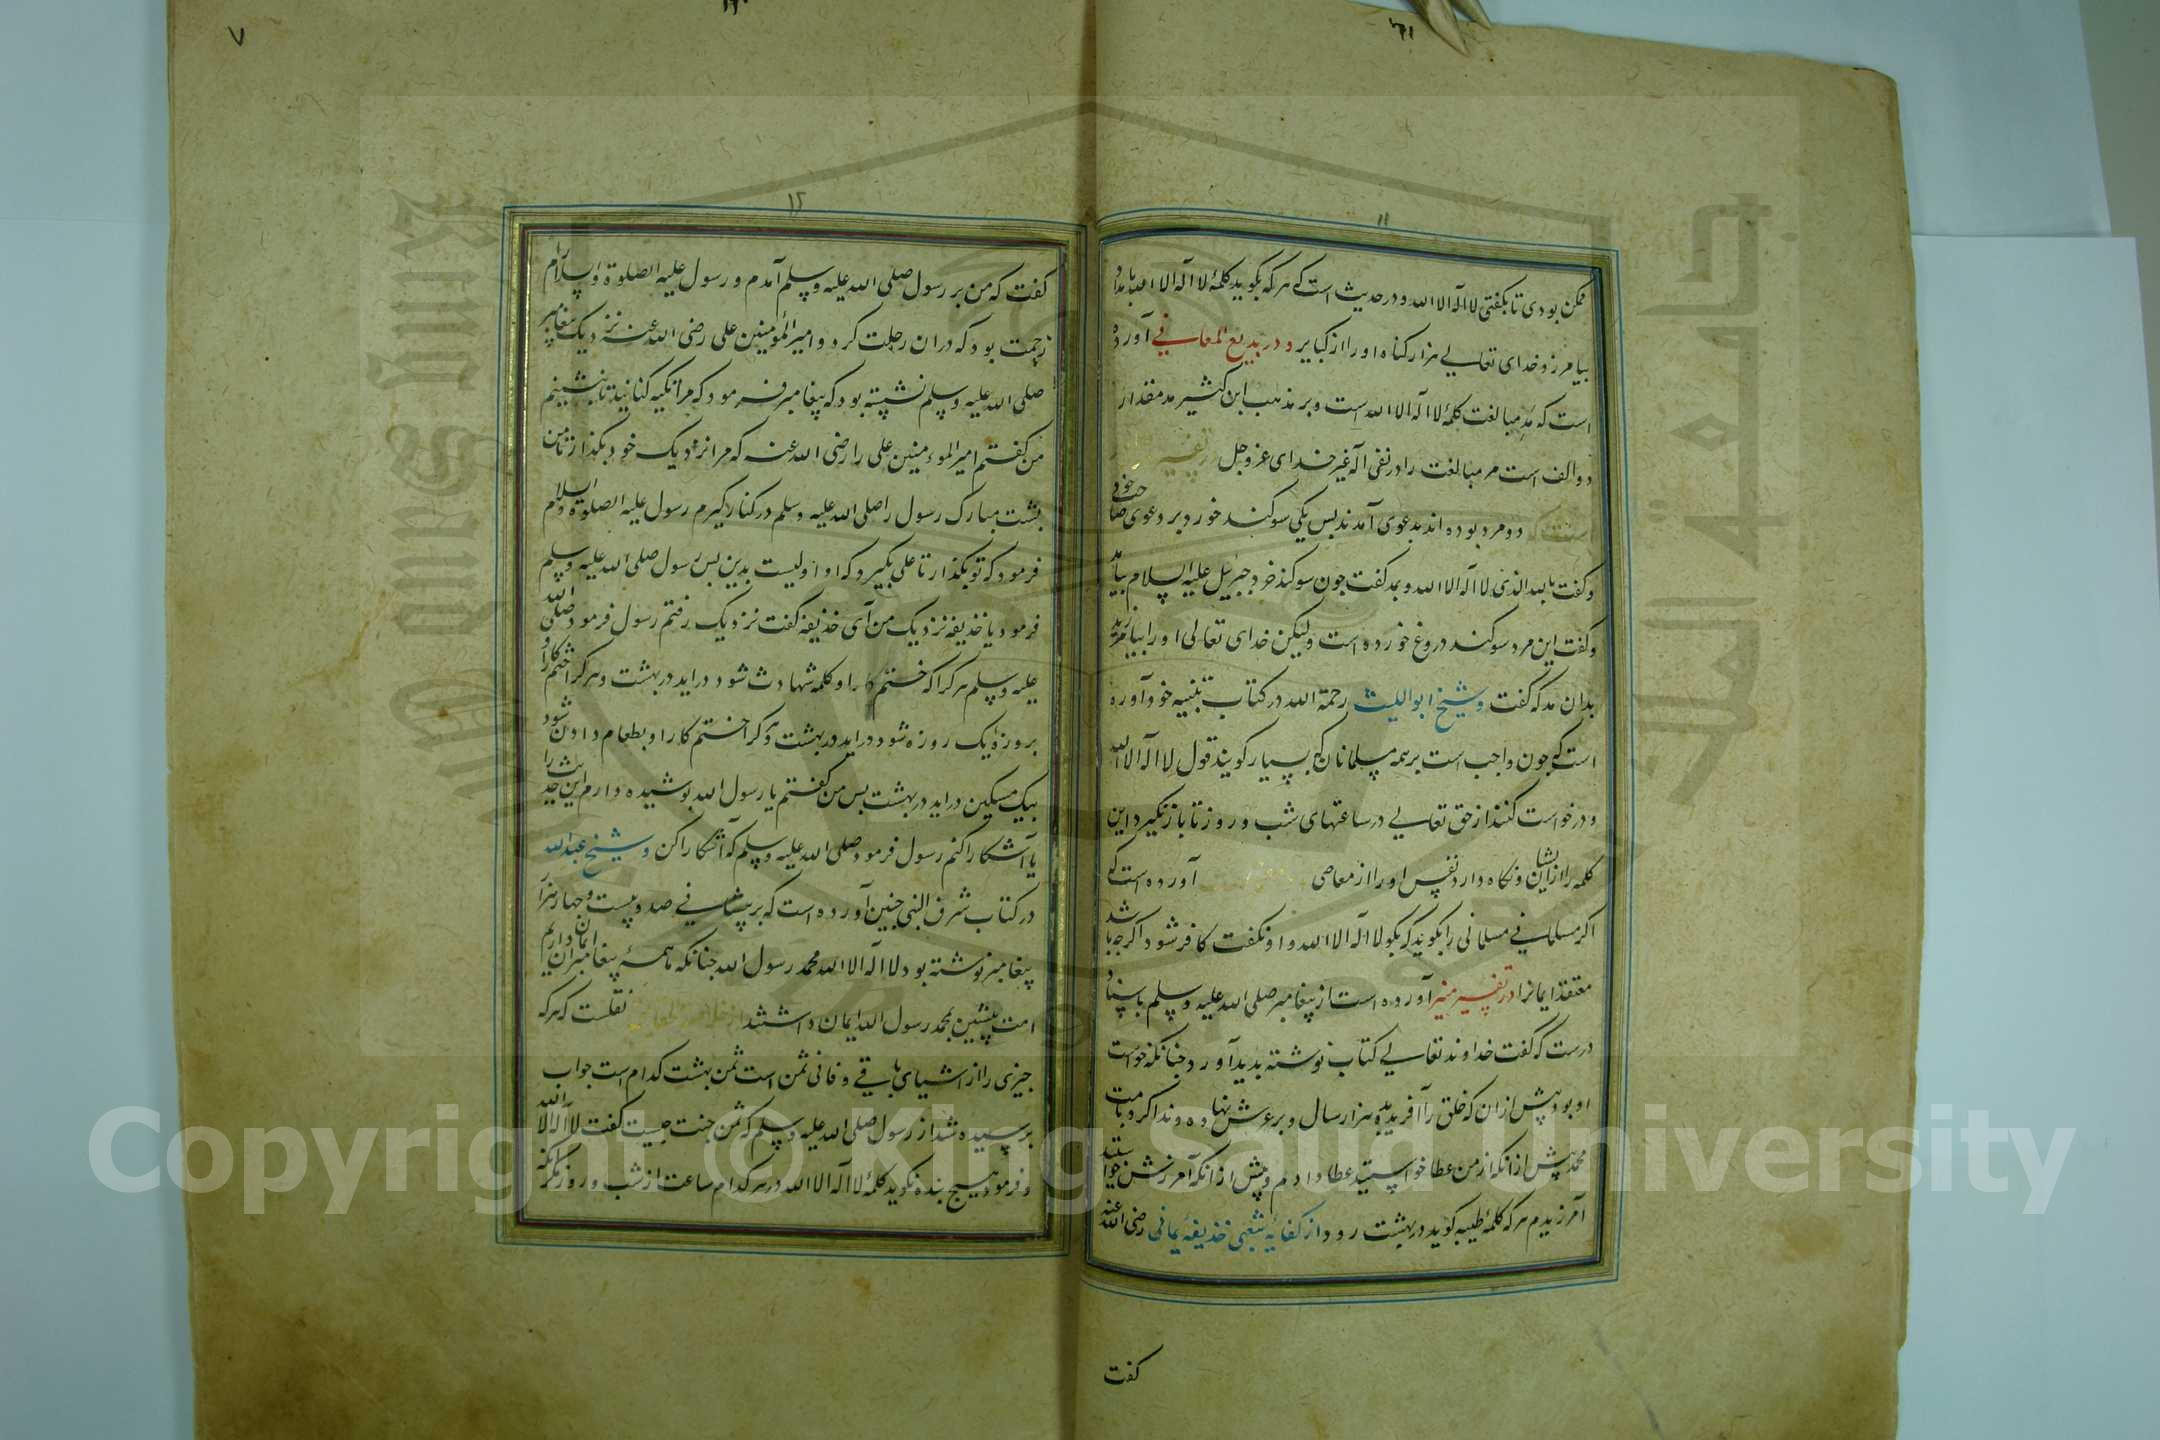 ۱۱
ممکن بودی تا بکفتی لا اله الا الله و در حدیث است که هر که بکوید کلمهٔ لا اله الا الله بامداد
بیامرزد خدای تعالی هزار کناه او را از کبایر و در بدیع المعانی آورده
است که مد مبالغت کلمهٔ لا اله الا الله است و بر مذهب ابن کثیر مد مقدار
دو الف است مر مبالغت را در نفی آله غیر خدای عز و جل در تفسیر
است که دو مرد بوده اند بدعوی آمدند بس یکی سوکند خورد بر دعوی صاحب خود
و کفت بالله الذی لا اله الا الله و بمد کفت جون سوکند خرد جبرئیل علیه السلام بیامد
و کفت این مرد سوکند دروغ خورده است ولیکن خدای تعالی او را بیامرزید
بدان مد که کفت و شیخ ابواللیث رحمة الله در کتاب تنبیه خود آورده
است که جون واجب است بر همه مسلمانان که بسیار کویند قول لا اله الا الله
و درخواست کنند از حق تعالی در ساعتهای شب و روز تا باز نکیرد این
کلمه را از ایشان و نکاه دارد نفس او را از معاصی آورده است که
اکر مسلمانی مسلمانی را بکوید که بکو لا اله الا الله و او نکفت کافر شود اکر جه باشد
معتقد ایمانرا در تفسیر منیر آورده است از پیغامبر صلی الله علیه وسلم باسناد
درست که کفت خداوند تعالی کتاب نوشته بدید آورد جنانکه خواست
او بود پیش از ان که خلق را آفریدم بدو هزار سال و بر عرش نهاده و ندا کرد یا امت
محمد پیش از انکه از من عطا خواستید عطا دادم و پیش از انکه آمرزش خواستید
آمرزیدم هر که کلمهٔ طیبه کوید در بهشت رود از کفایهٔ شعبی خذیفهٔ یمانی رضی الله عنه
کفت
۷
۱۲
کفت که من بر رسول صلی الله علیه وسلم آمدم و رسول علیه الصلوة والسلام
زحمت بود که دران رحلت کرد و امیر المؤمنین علی رضی الله عنه نزدیک پیغامبر
صلی الله علیه وسلم نشسته بود که پیغامبر فرمود که مرا تکیه کنانید تا بنشینم
من کفتم امیر المومنین علی را رضی الله عنه که مرا نزدیک خود بکذار تا من
بشت مبارک رسول را صلی الله علیه وسلم در کنار کیرم رسول علیه الصلوة والسلام
فرمود که تو بکذار تا علی بکیرد که او اولیست بدین بس رسول صلی الله علیه وسلم
فرمود یا خذیفه نزدیک من آی خذیفه کفت نزدیک رفتم رسول فرمود صلی الله
علیه وسلم هر کرا که ختم کار او کلمه شهادت شود دراید در بهشت و هر کرا ختم کار او
بروزهٔ یک روزه شود دراید در بهشت و هر کرا ختم کار او بطعام دادن شود
بیک مسکین دراید در بهشت بس من کفتم یا رسول الله بوشیده دارم این حدیث را
یا آشکارا کنم رسول فرمود صلی الله علیه وسلم که آشکارا کن و شیخ عبدالله
در کتاب شرف النبی جنین آورده است که بر پیشانی صد و بیست و جهار هزار
پیغامبر نوشته بود لا اله الا الله محمد رسول الله جنانکه ما همهٔ پیغامبران ایمان داریم
امت پیشین بمحمد رسول الله ایمان داشتند نقلست که هر که
جیزی را از اشیای باقی و فانی ثمن است ثمن بهشت کدام است جواب
برسیده شد از رسول صلی الله علیه وسلم که ثمن جنت جیست کفت لا اله الا الله
و فرمود هیج بنده نکوید کلمهٔ لا اله الا الله در هر کدام ساعت از شب و روز مکر انکه
Copyright © King Saud University